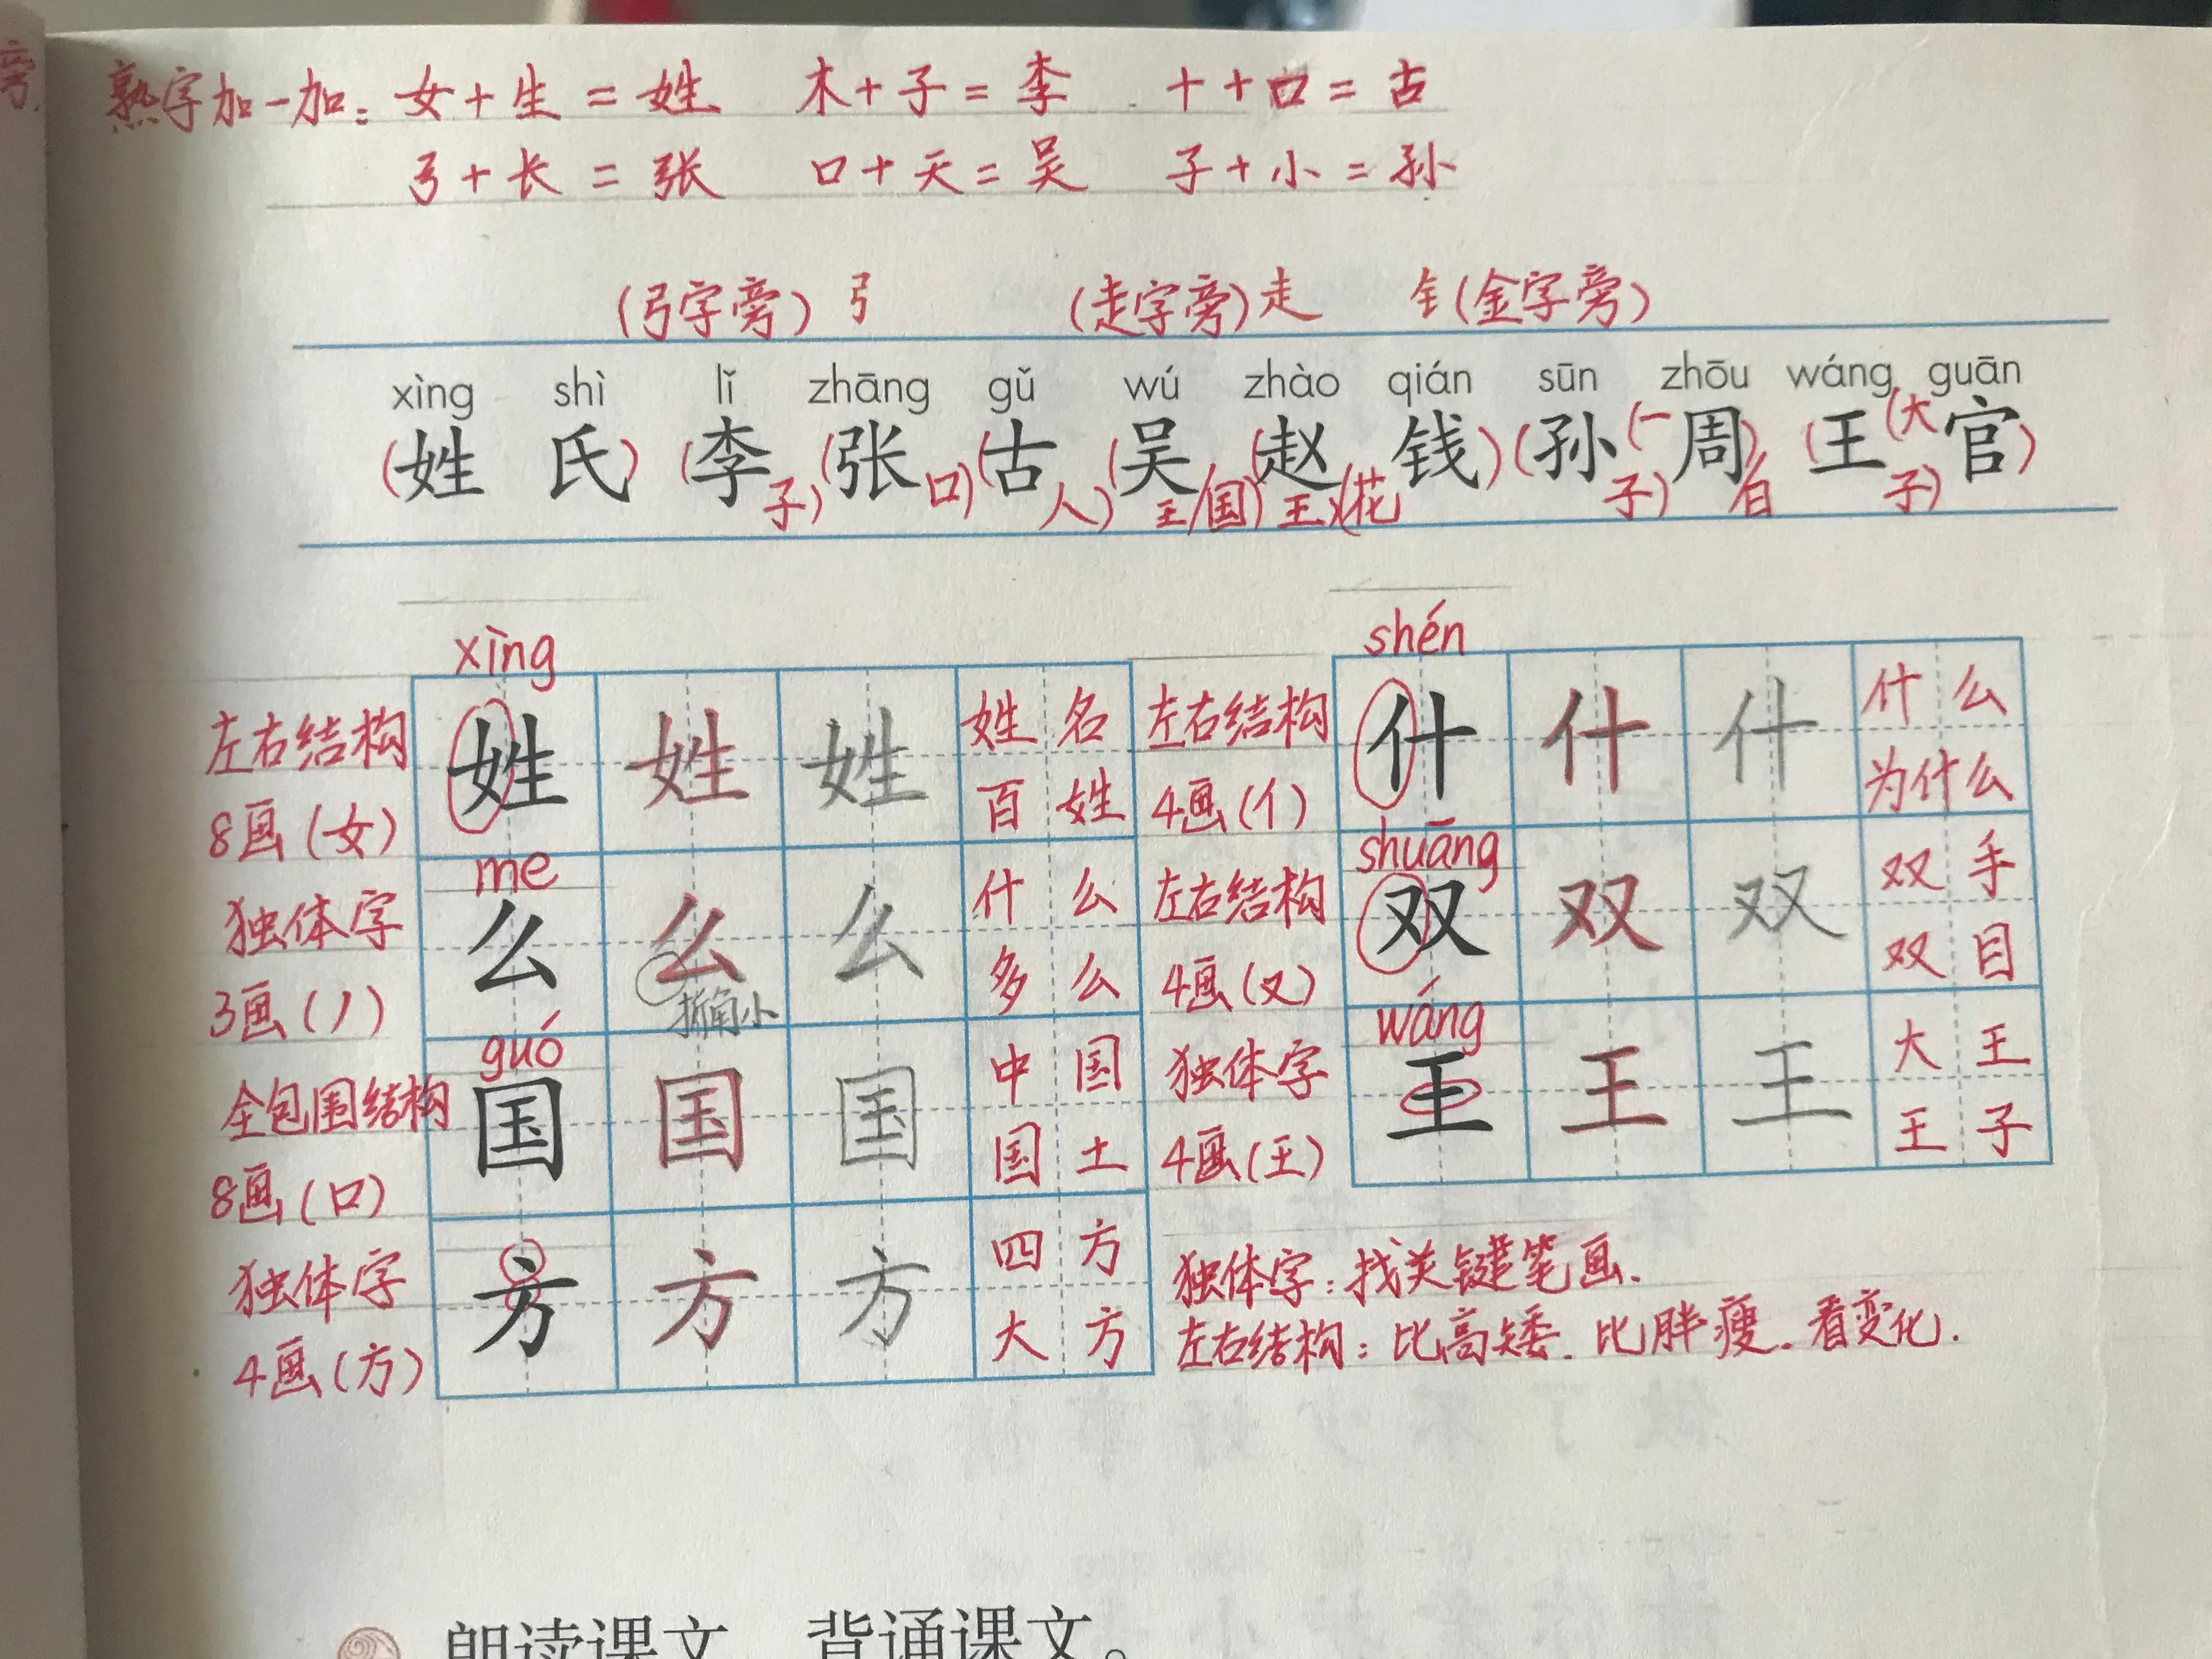 熟字加一加：女+生=姓 木+子=李 十+口=古
弓+长=张 口+天=吴 子+小=孙
(弓字旁) 弓 (走字旁) 走 钅(金字旁)
xìng shì lǐ zhāng gǔ wú zhào qián sūn zhōu wáng guān
(姓 氏) (李子) (张口) (古人) (吴王/国) (赵王) (花钱) (孙子) (一周/百) (王子) (大官)
xìng
左右结构 姓 姓 姓 姓名
8画(女) 百姓
me
独体字 么 么 么 什么
3画(丿) 折角小 多么
guó
全包围结构 国 国 国 中国
8画(口) 国土
独体字 方 方 方 四方
4画(方) 大方
shén
左右结构 什 什 什 什么
4画(亻) 为什么
shuāng
左右结构 双 双 双 双手
4画(又) 双目
wáng
独体字 王 王 王 大王
4画(王) 王子
独体字：找关键笔画.
左右结构：比高矮.比胖瘦.看变化.
朗读课文 背诵课文。